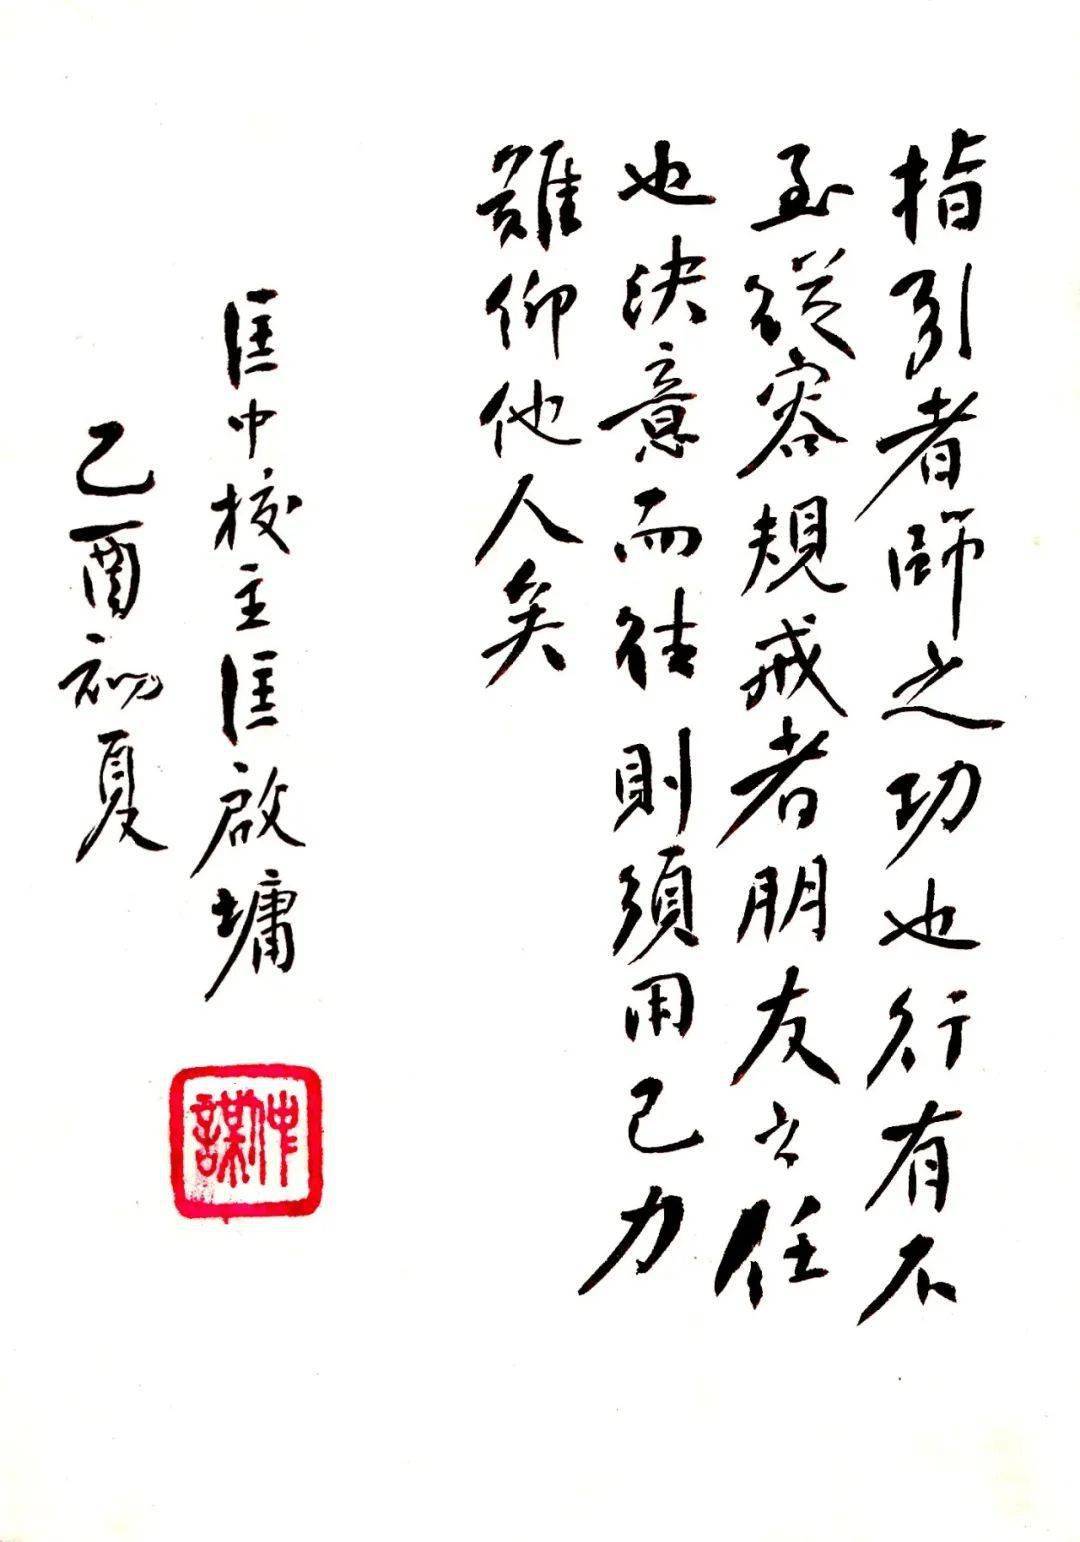 指引者師之功也行有不
至從容規戒者朋友之任
也決意而往則須用己力
難仰他人矣
匡中校主匡啟墉
乙酉初夏